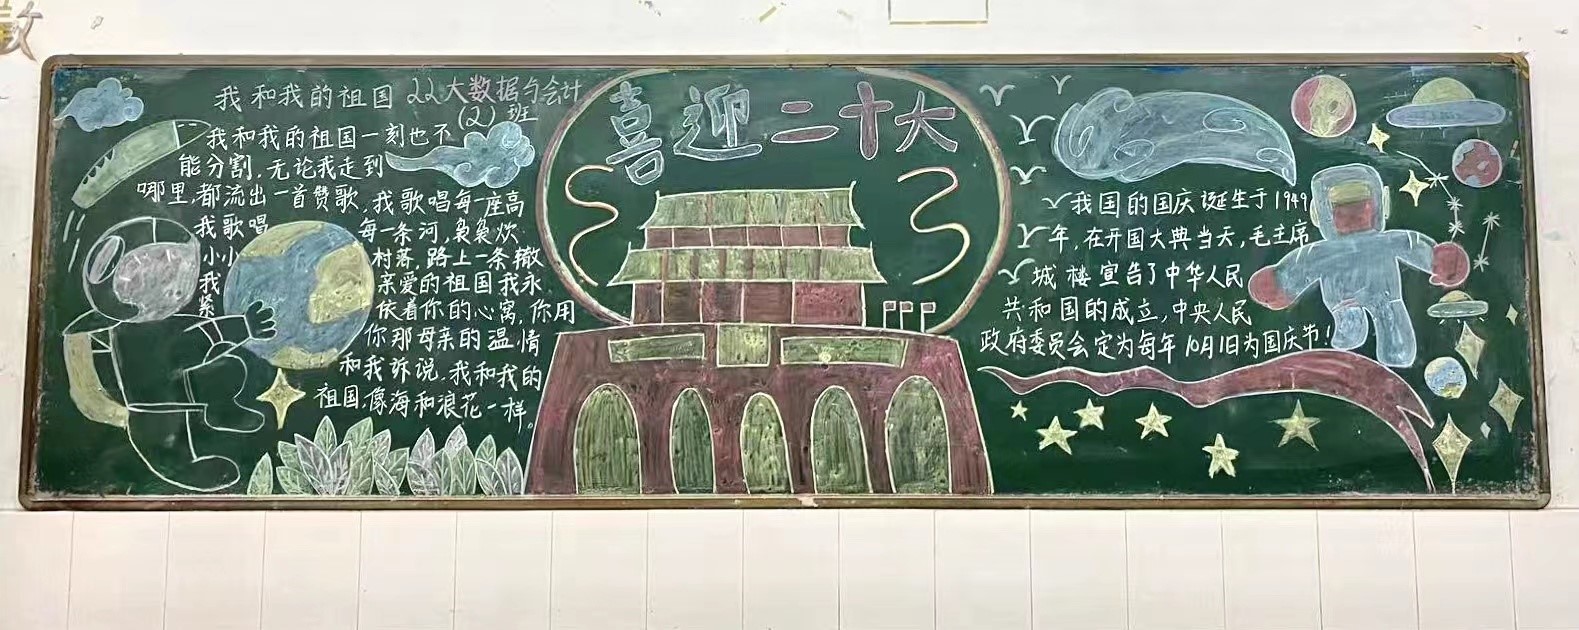 我和我的祖国 22大数据与会计
(2) 班
我和我的祖国一刻也不
能分割,无论我走到
哪里,都流出一首赞歌,我歌唱每一座高
我歌唱 每一条河,袅袅炊
小小 村落,路上一条辙
我 亲爱的祖国我永
紧 依着你的心窝,你用
你那母亲的温情
和我诉说,我和我的
祖国,像海和浪花一样。
喜迎二十大
我国的国庆诞生于1949
年,在开国大典当天,毛主席
城楼宣告了中华人民
共和国的成立,中央人民
政府委员会定为每年10月1日为国庆节!